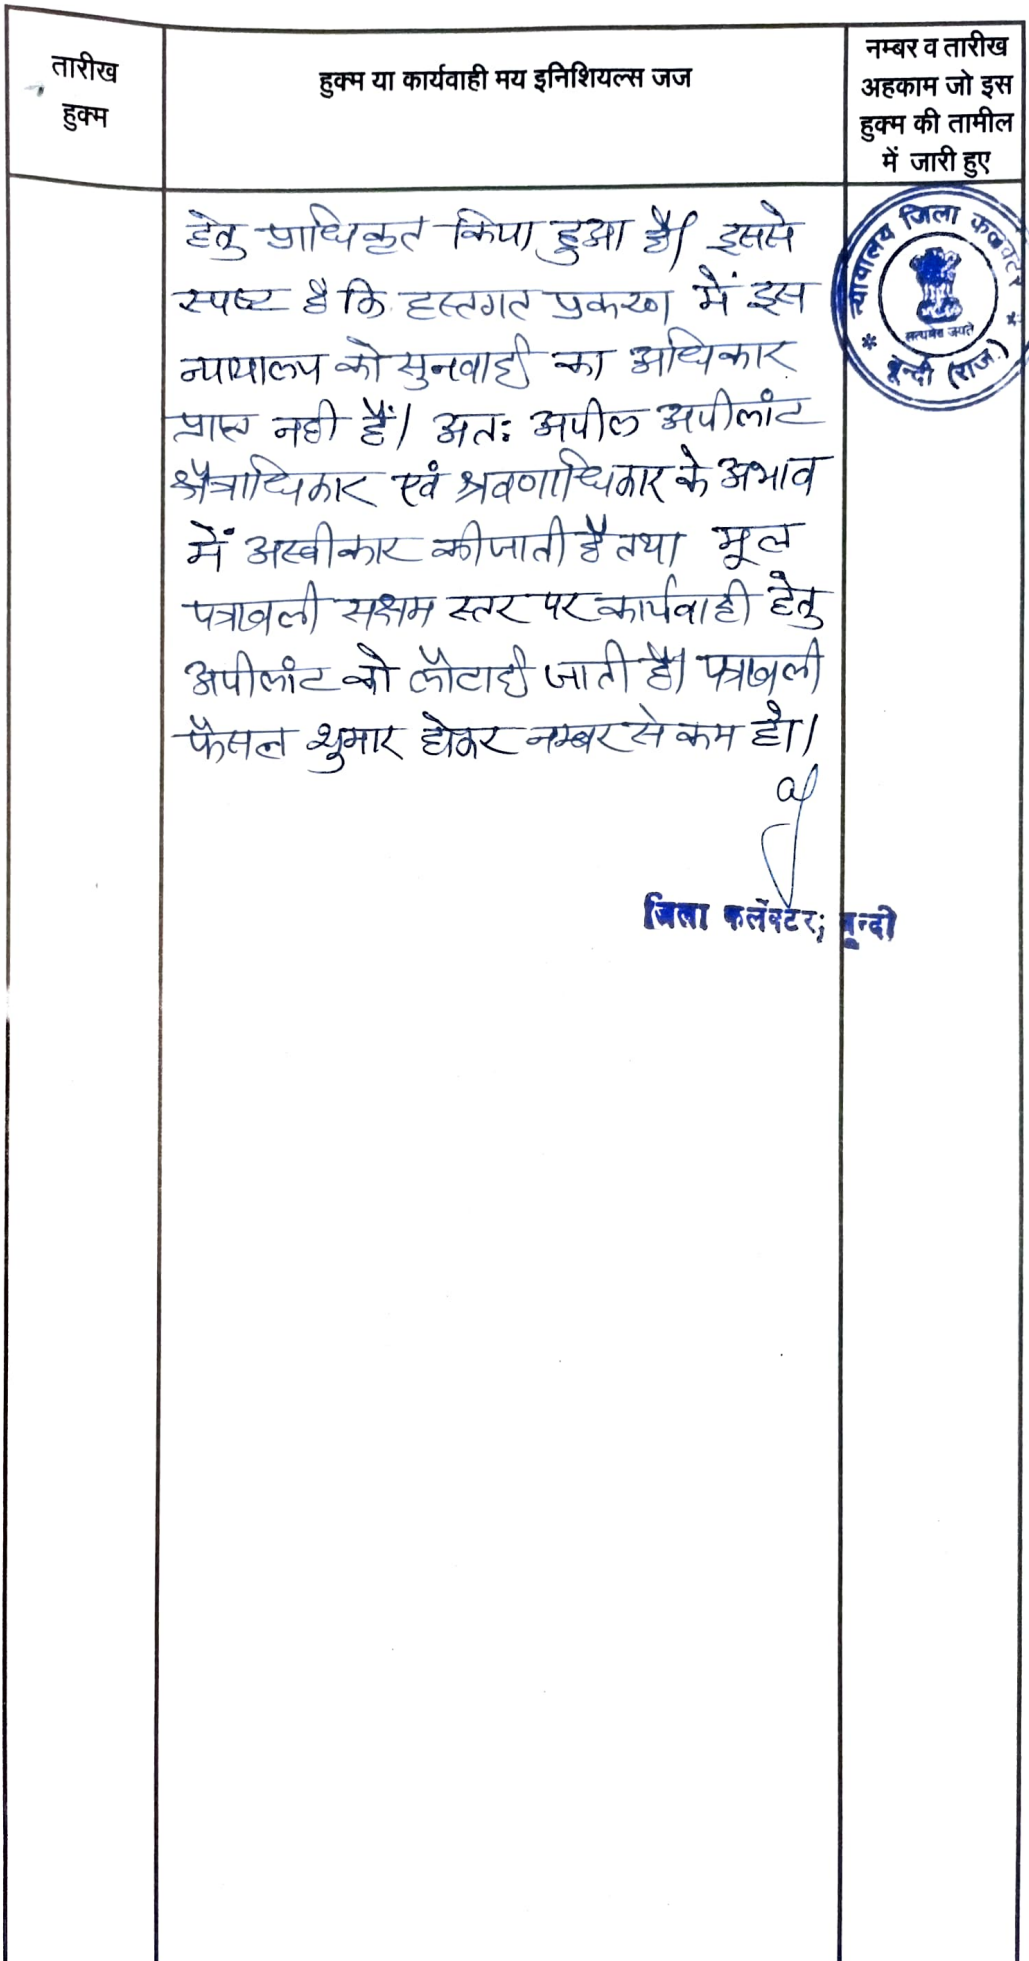 तारीख
हुक्म
हुक्म या कार्यवाही मय इनिशियल्स जज
नम्बर व तारीख
अहकाम जो इस
हुक्म की तामील
में जारी हुए
हेतु प्राधिकृत किया हुआ है। इससे
स्पष्ट है कि हस्तगत प्रकरण में इस
न्यायालय को सुनवाई का अधिकार
प्राप्त नही हैं। अतः अपील अपीलांट
क्षैत्राधिकार एवं श्रवणाधिकार के अभाव
में अस्वीकार की जाती है तथा मूल
पत्रावली सक्षम स्तर पर कार्यवाही हेतु
अपीलांट को लौटाई जाती है। पत्रावली
फैसल शुमार होकर नम्बर से कम हो।
जिला कलेक्टर, बून्दी
न्यायालय जिला कलक्टर
सत्यमेव जयते
* बून्दी (राज.) *